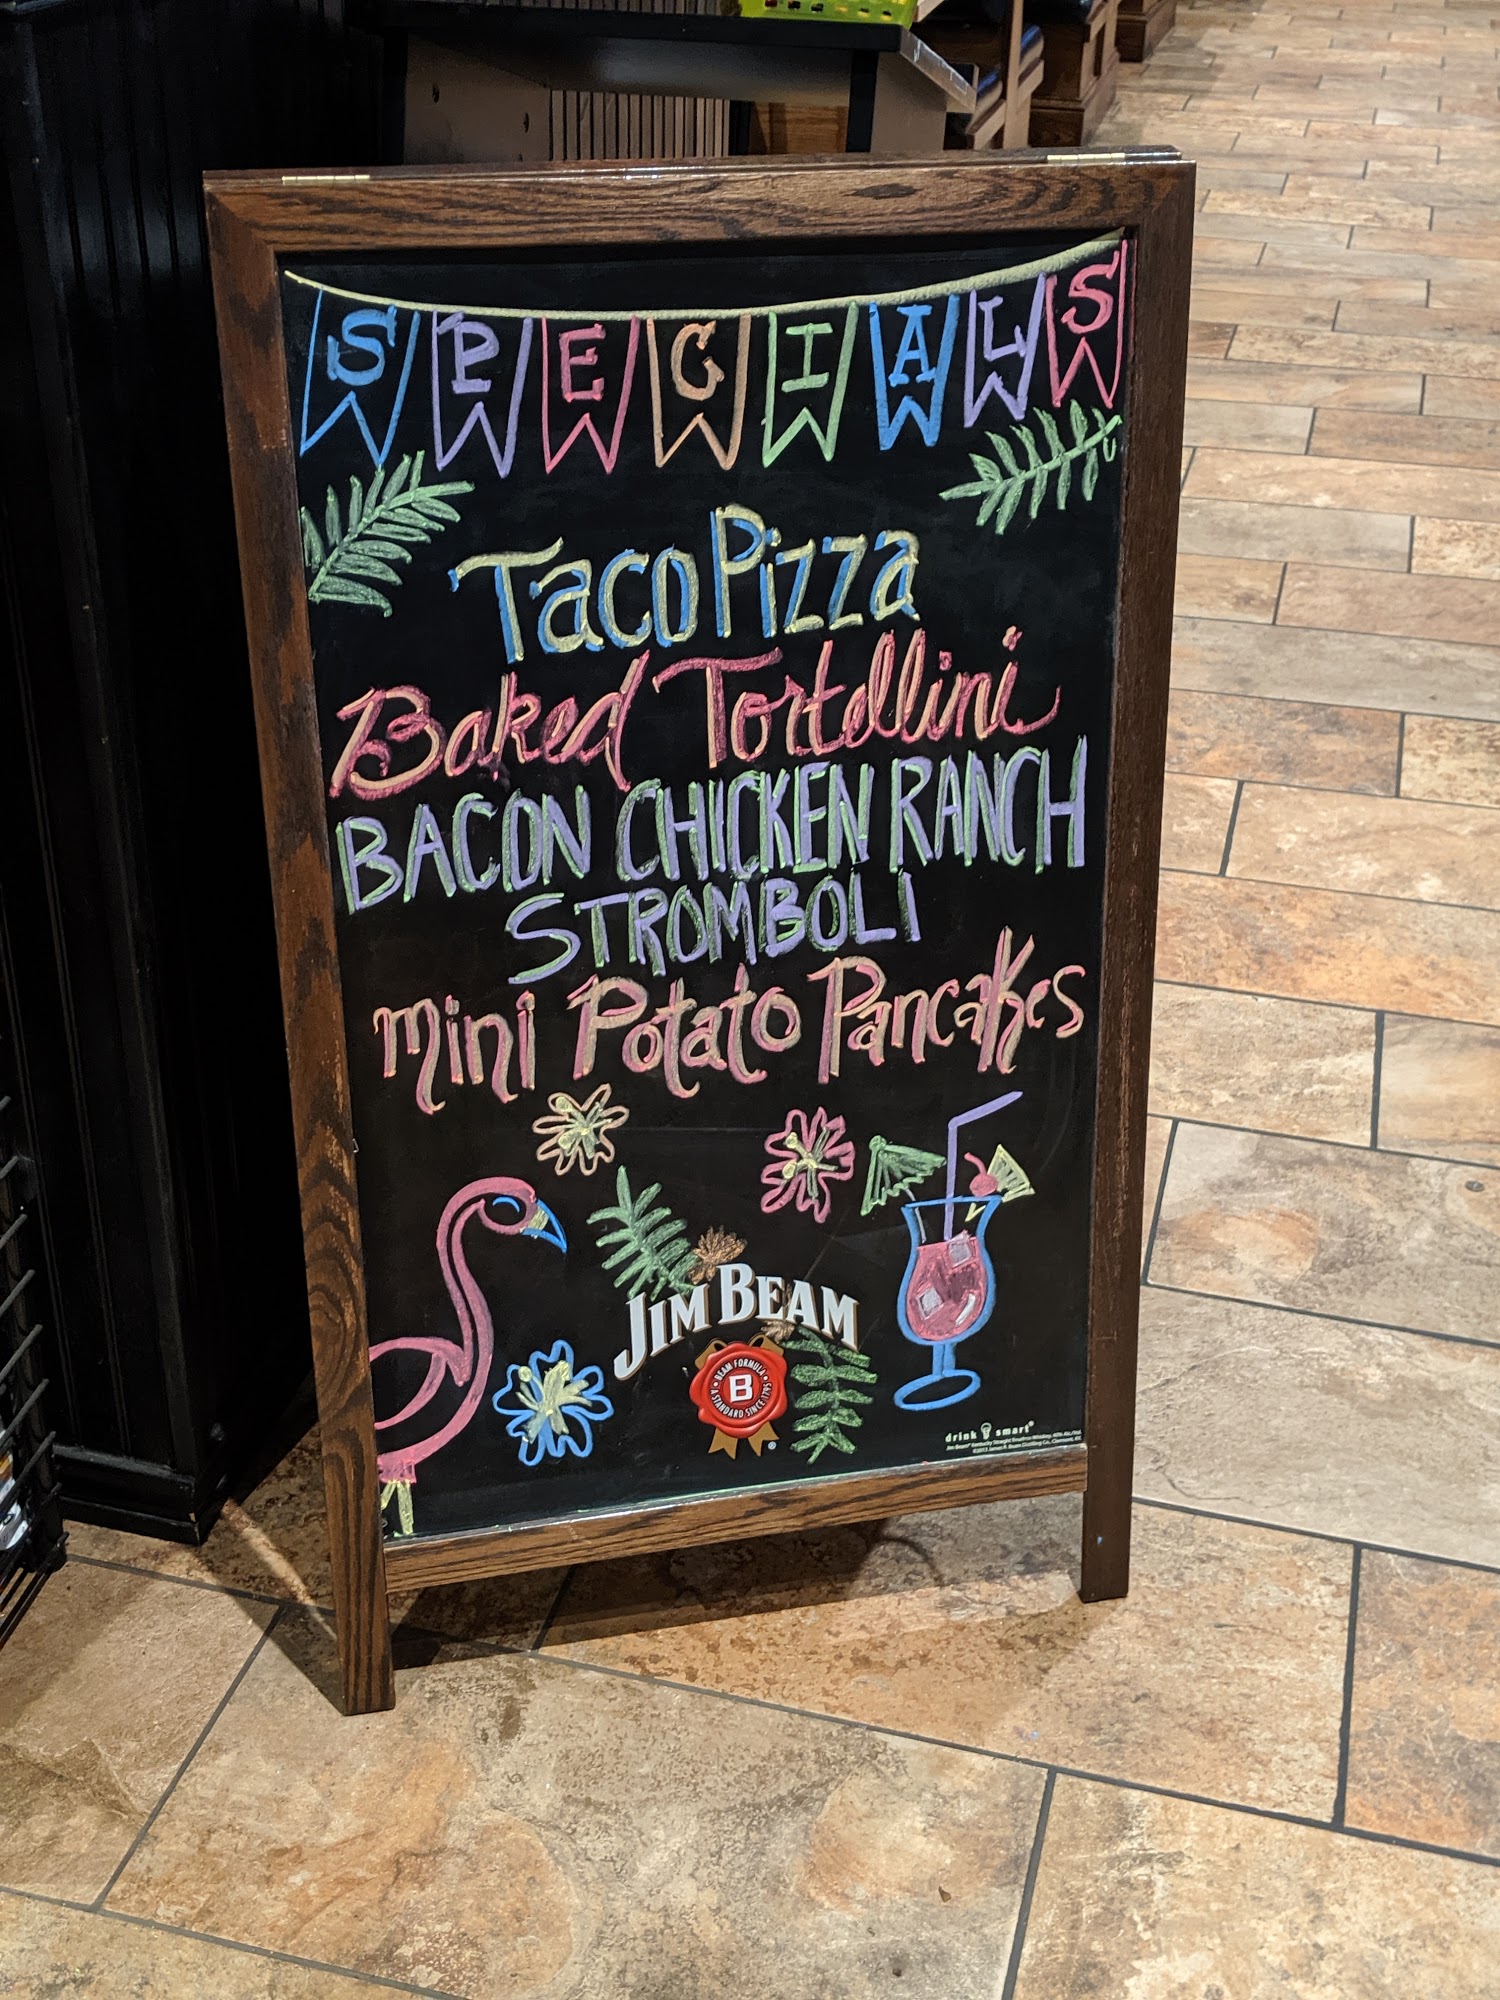 SPECIALS
Taco Pizza
Baked Tortellini
BACON CHICKEN RANCH
STROMBOLI
mini Potato Pancakes
JIM BEAM
BEAM FORMULA
B
A STANDARD SINCE 1795
drink smart®